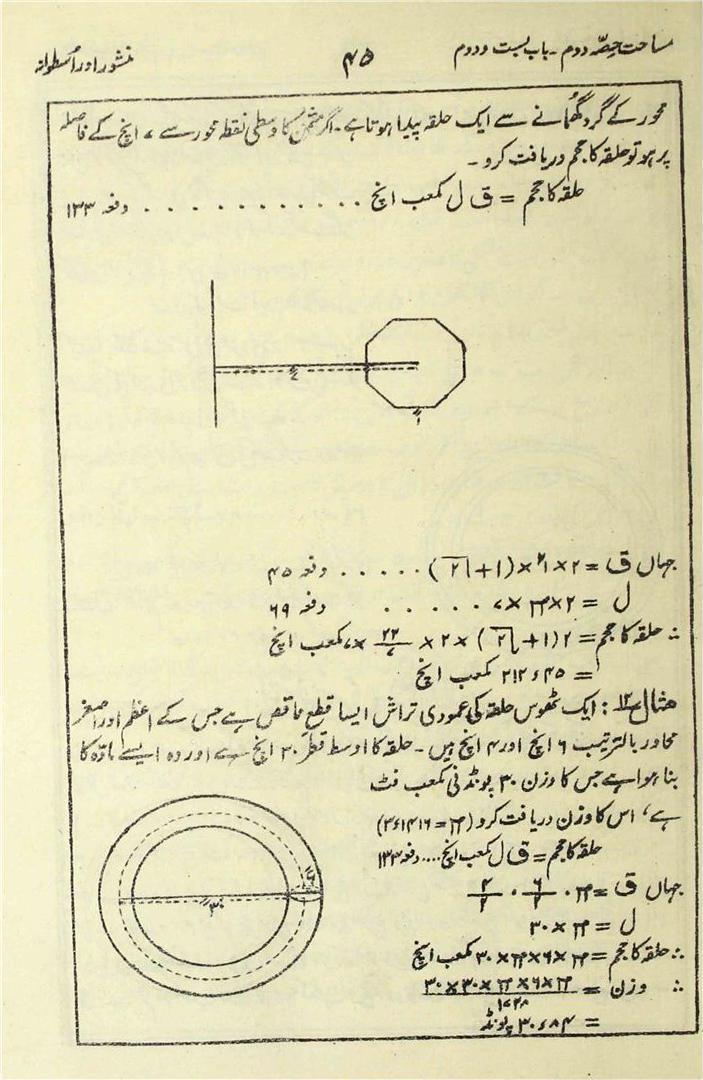 مساحت حصّہ دوم ۔ باب بست و دوم
۴۵
منشور اور اُسطوانہ
محور کے گرد گھُمانے سے ایک حلقہ پیدا ہوتا ہے ۔ اگر مثمن کا وسطی نقطہ محور سے ۷ انچ کے فاصلہ
پر ہو تو حلقہ کا حجم دریافت کرو ۔
حلقہ کا حجم = ق ل مکعب انچ . . . . . . . . . . . . دفعہ ۱۳۳
۷ً
۱ً
جہاں ق = ۲ × ۱² × (۱ + √۲) . . . . . دفعہ ۴۵
ل = ۲ × π × ۷ . . . . . . دفعہ ۶۹
∴ حلقہ کا حجم = ۲ (۱ + √۲) × ۲ × ۲۲/۷ × ۷ مکعب انچ
= ۲۱۲٫۴۵ مکعب انچ
مثال ۱۲ : ایک ٹھوس حلقہ کی عمودی تراش ایسا قطع ناقص ہے جس کے اعظم اور اصغر
محاور بالترتیب ۶ انچ اور ۴ انچ ہیں ۔ حلقہ کا اوسط قطر ۳۰ انچ ہے اور وہ ایسے مادّہ کا
بنا ہوا ہے جس کا وزن ۳۰ پونڈ فی مکعب فٹ
ہے ، اس کا وزن دریافت کرو (π = ۳٫۱۴۱۶)
حلقہ کا حجم = ق ل مکعب انچ .... دفعہ ۱۳۳
۶ً
۳۰ً
جہاں ق = π . ۶/۲ . ۴/۲
ل = π × ۳۰
∴ حلقہ کا حجم = π × ۶ × π × ۳۰ مکعب انچ
∴ وزن = π × ۶ × π × ۳۰ × ۳۰ / ۱۷۲۸
= ۳۰٫۸۴ پونڈ